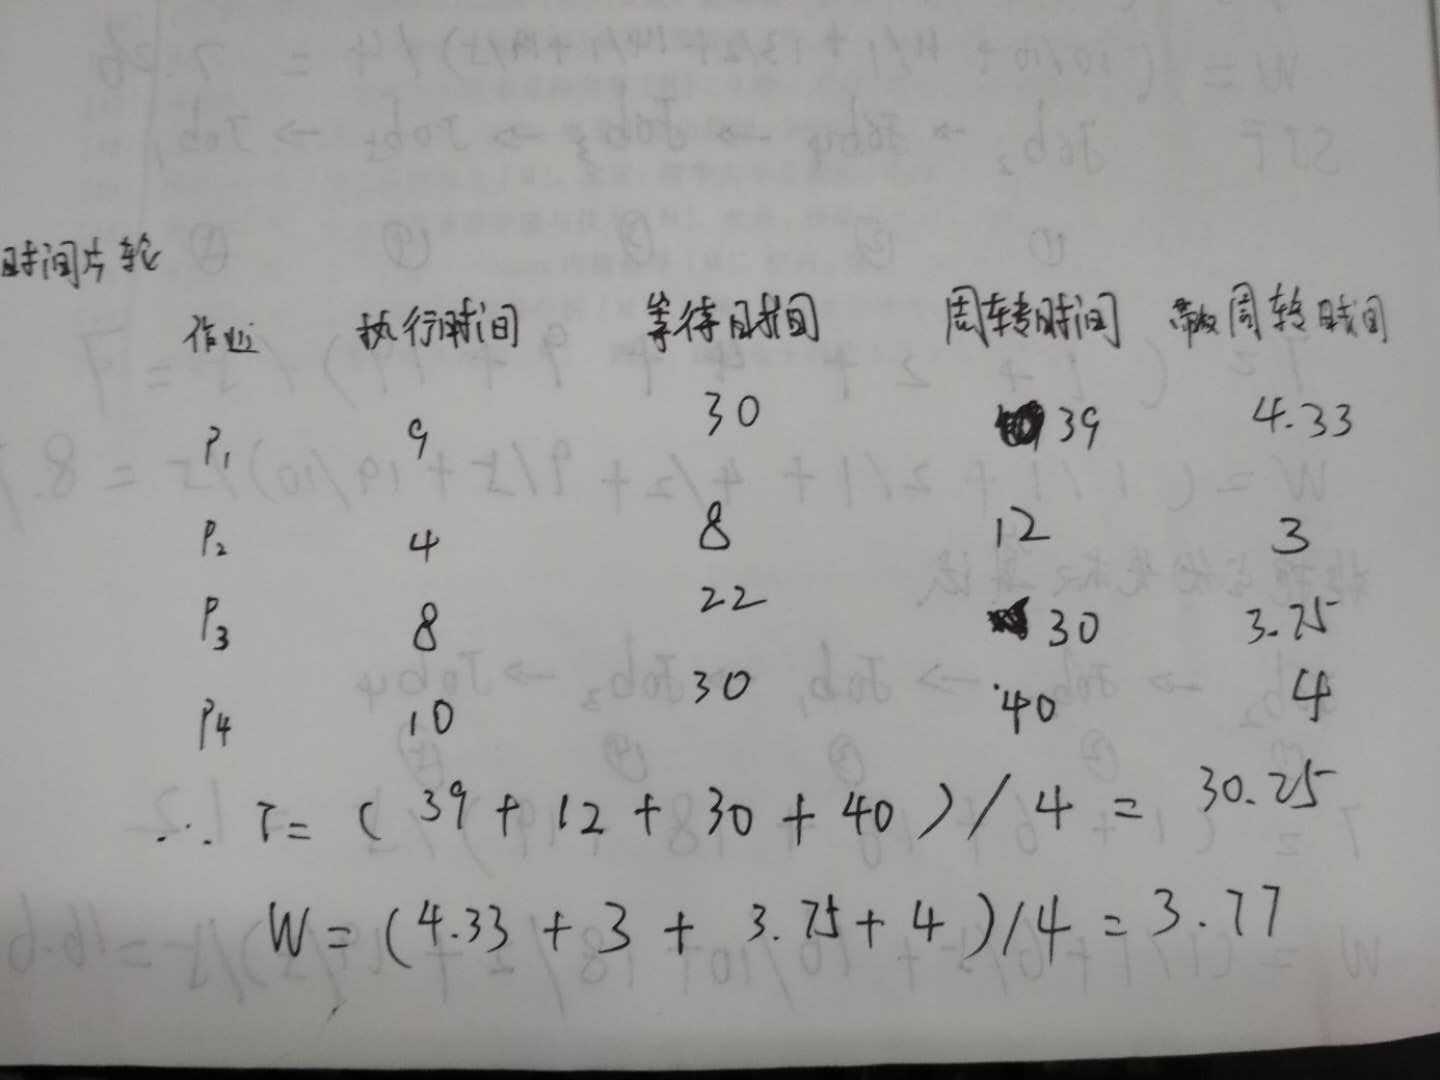 时间片轮
作业 执行时间 等待时间 周转时间 带权周转时间
P1 9 30 39 4.33
P2 4 8 12 3
P3 8 22 30 3.75
P4 10 30 40 4
∴ T = ( 39 + 12 + 30 + 40 ) / 4 = 30.25
W = (4.33 + 3 + 3.75 + 4 )/4 = 3.77